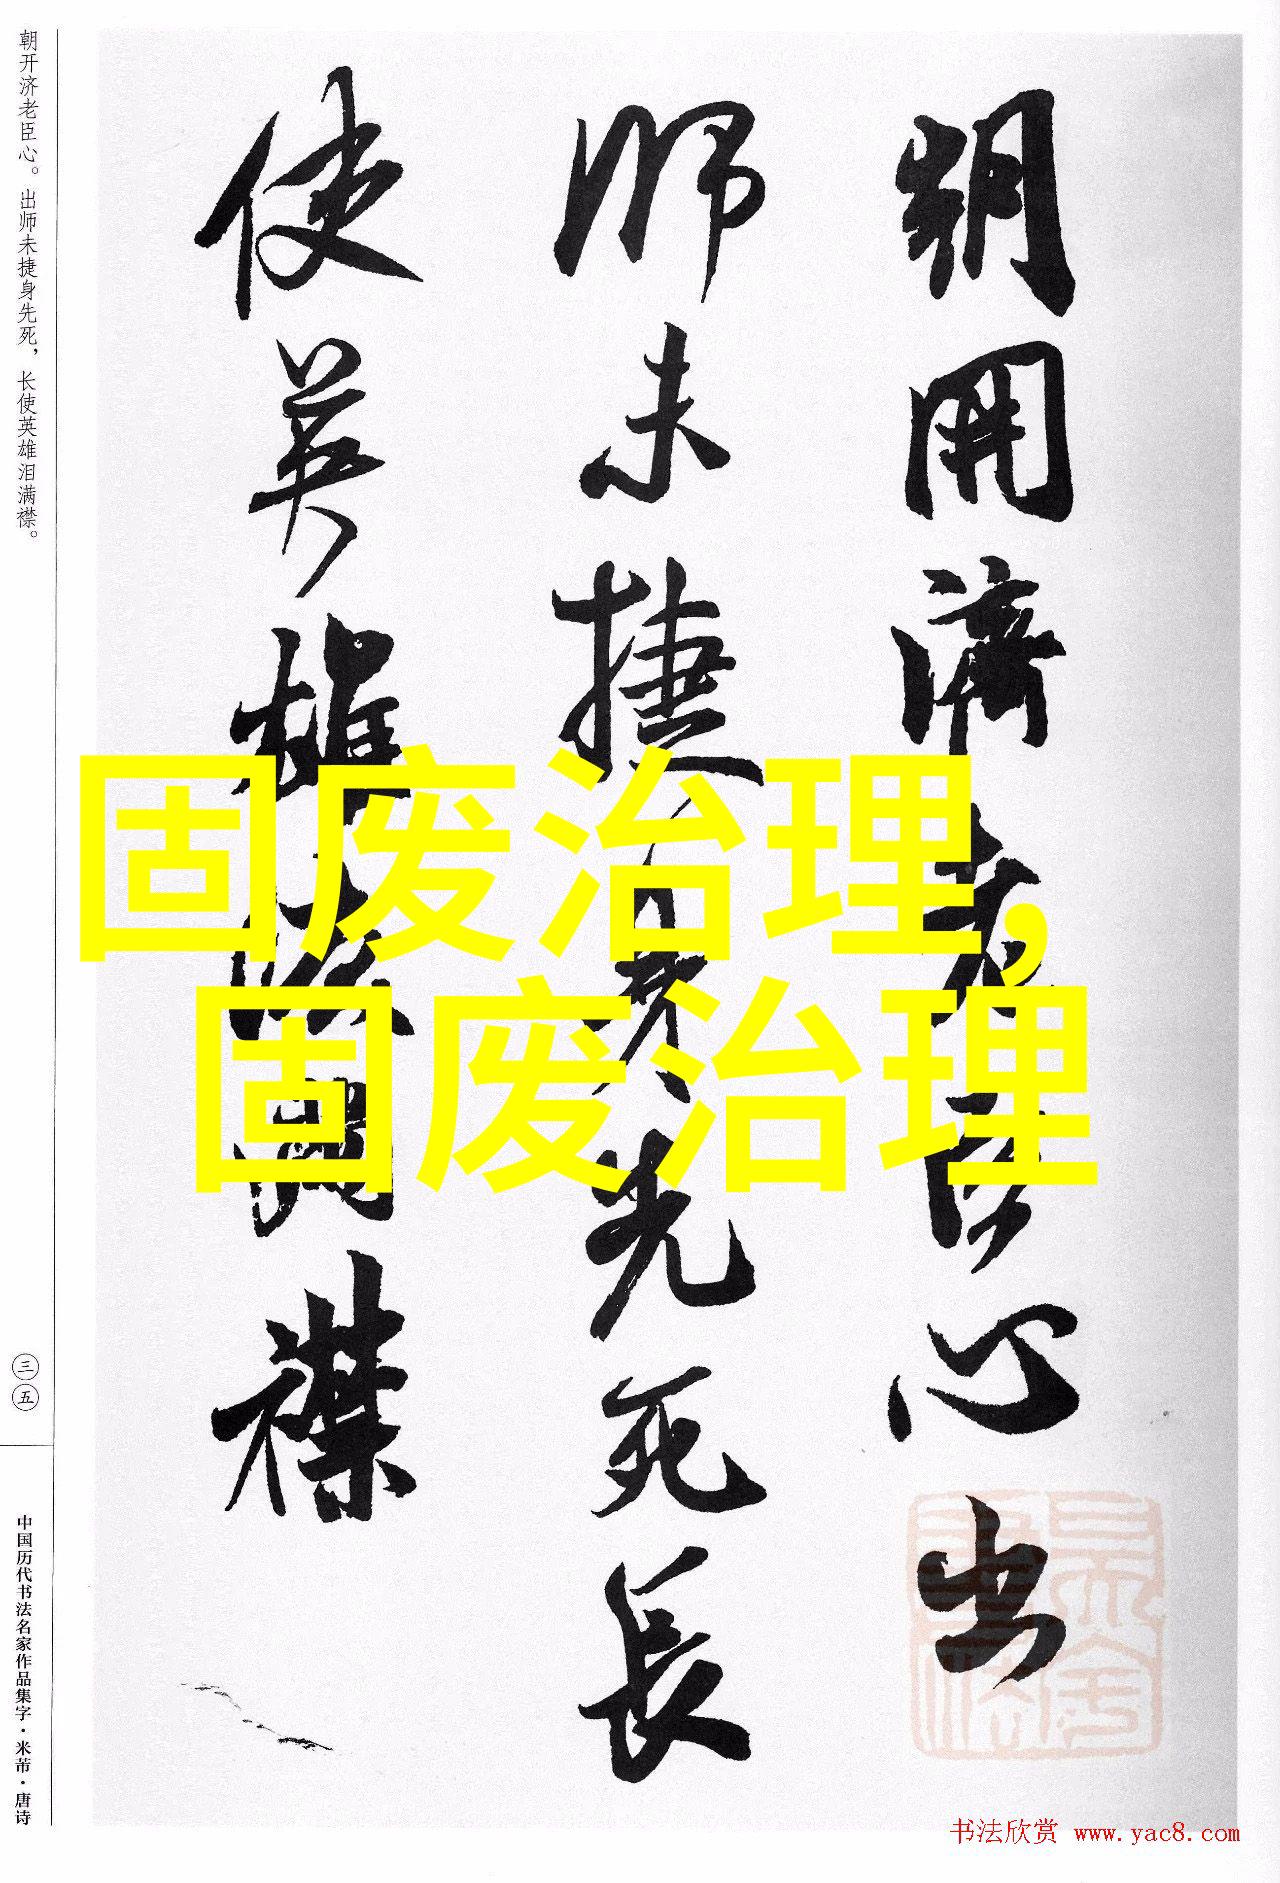 朝開濟老臣心出
師未捷身先死長
使英雄淚滿襟
朝开济老臣心。出师未捷身先死，长使英雄泪满襟。
三五
中国历代书法名家作品集字·米芾·唐诗
固废治理,
固废治理
书法欣赏 www.yac8.com